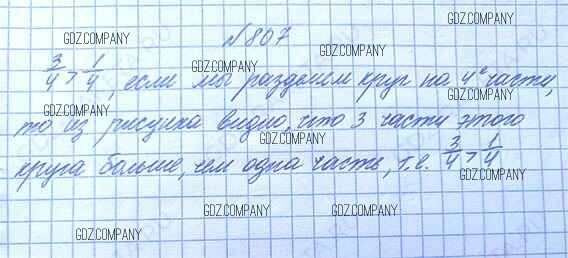 GDZ.COMPANY
№807
GDZ.COMPANY
GDZ.COMPANY
3/4 > 1/4, если мы разделим круг на 4 части,
GDZ.COMPANY
GDZ.COMPANY
то из рисунка видно, что 3 части этого
GDZ.COMPANY
круга больше, чем одна часть, т.е. 3/4 > 1/4
GDZ.COMPANY
GDZ.COMPANY
GDZ.COMPANY
GDZ.COMPANY